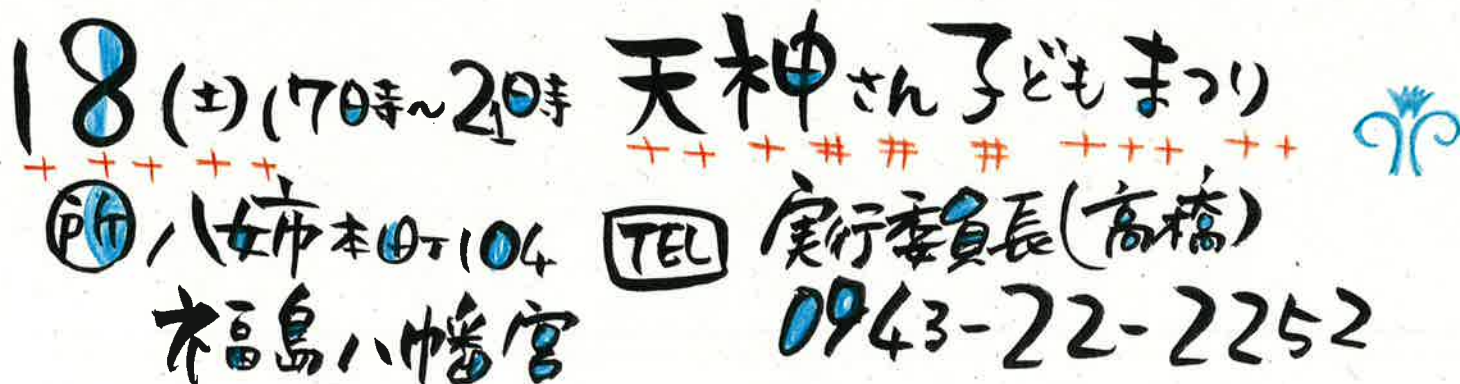 18(土)17時~21時 天神さん子どもまつり
所 八女市本町104
福島八幡宮
TEL 実行委員長(高橋)
0943-22-2252